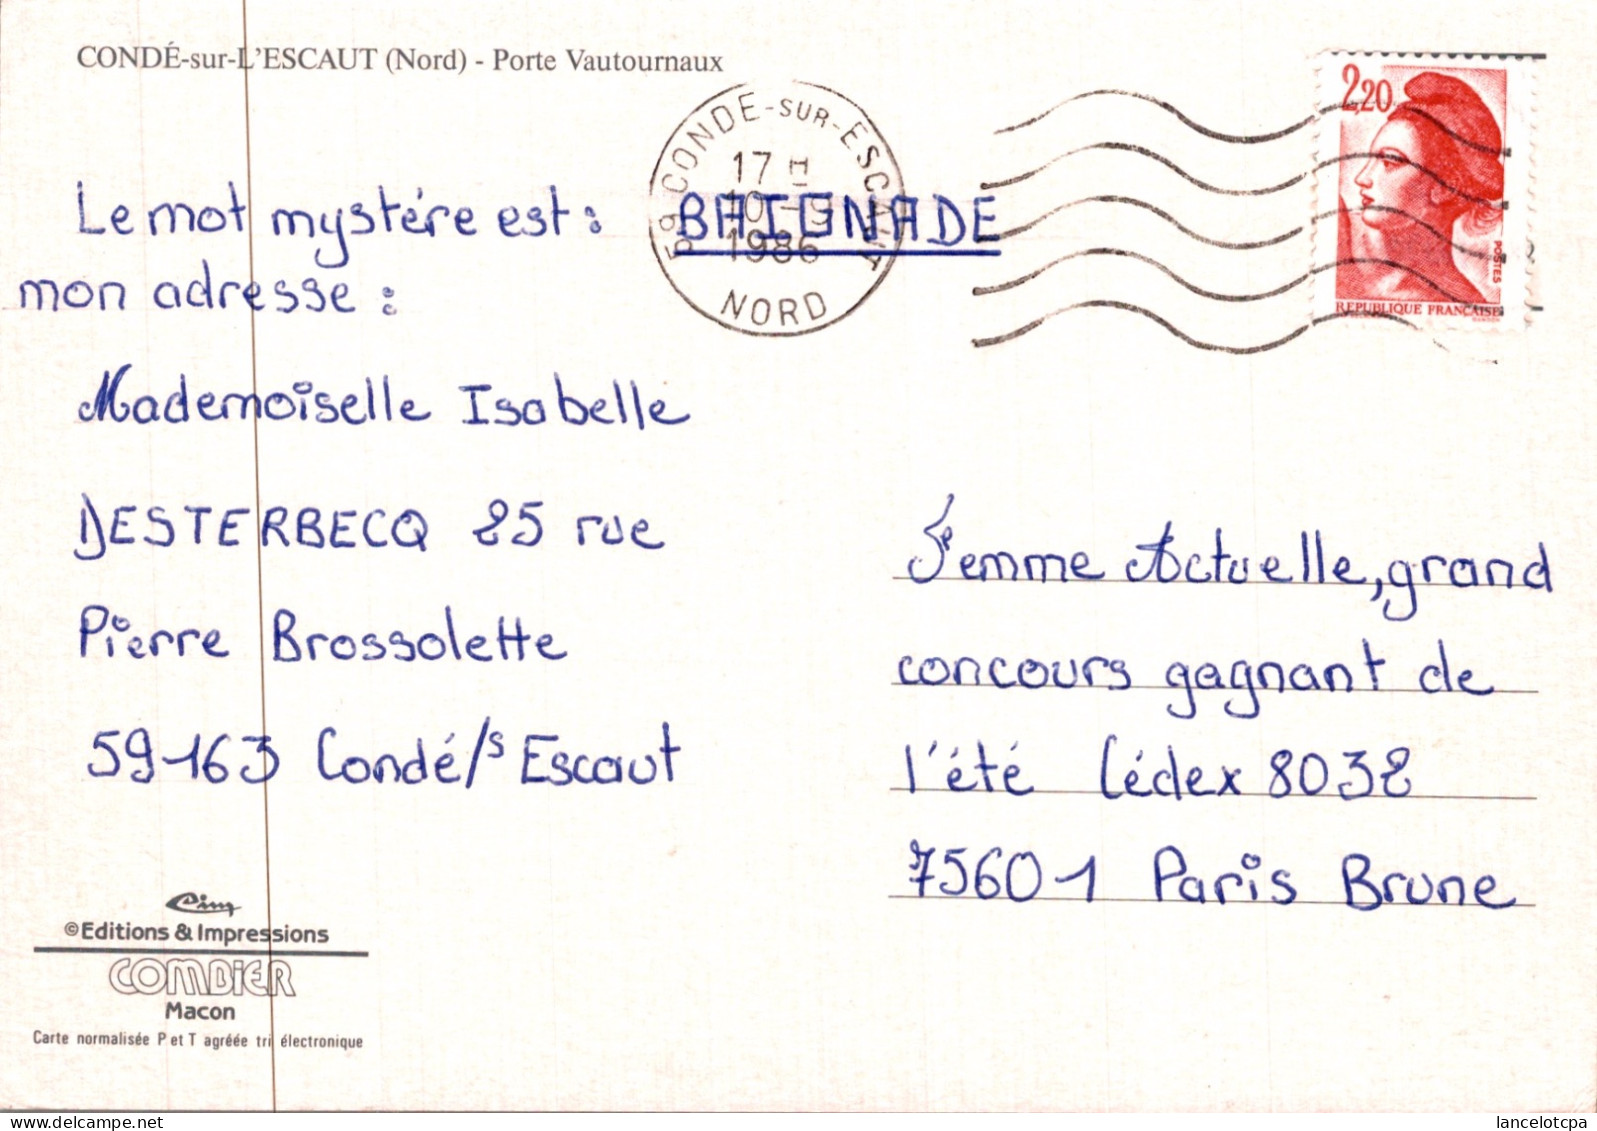 CONDÉ-sur-L'ESCAUT (Nord) - Porte Vautournaux
59 CONDE-SUR-ESCAUT
17 H
10 - 9
1986
NORD
2,20
POSTES
REPUBLIQUE FRANÇAISE
Le mot mystére est : BAIGNADE
mon adresse :
Mademoiselle Isabelle
DESTERBECQ 25 rue
Pierre Brossolette
59163 Condé/s Escaut
Femme Actuelle, grand
concours gagnant de
l'été Cédex 8038
75601 Paris Brune
Cim
©Editions & Impressions
COMBIER
Macon
Carte normalisée P et T agréée tri électronique
lancelotcpa